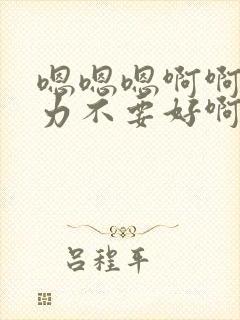 嗯嗯嗯啊啊
力不要好啊
吕程平